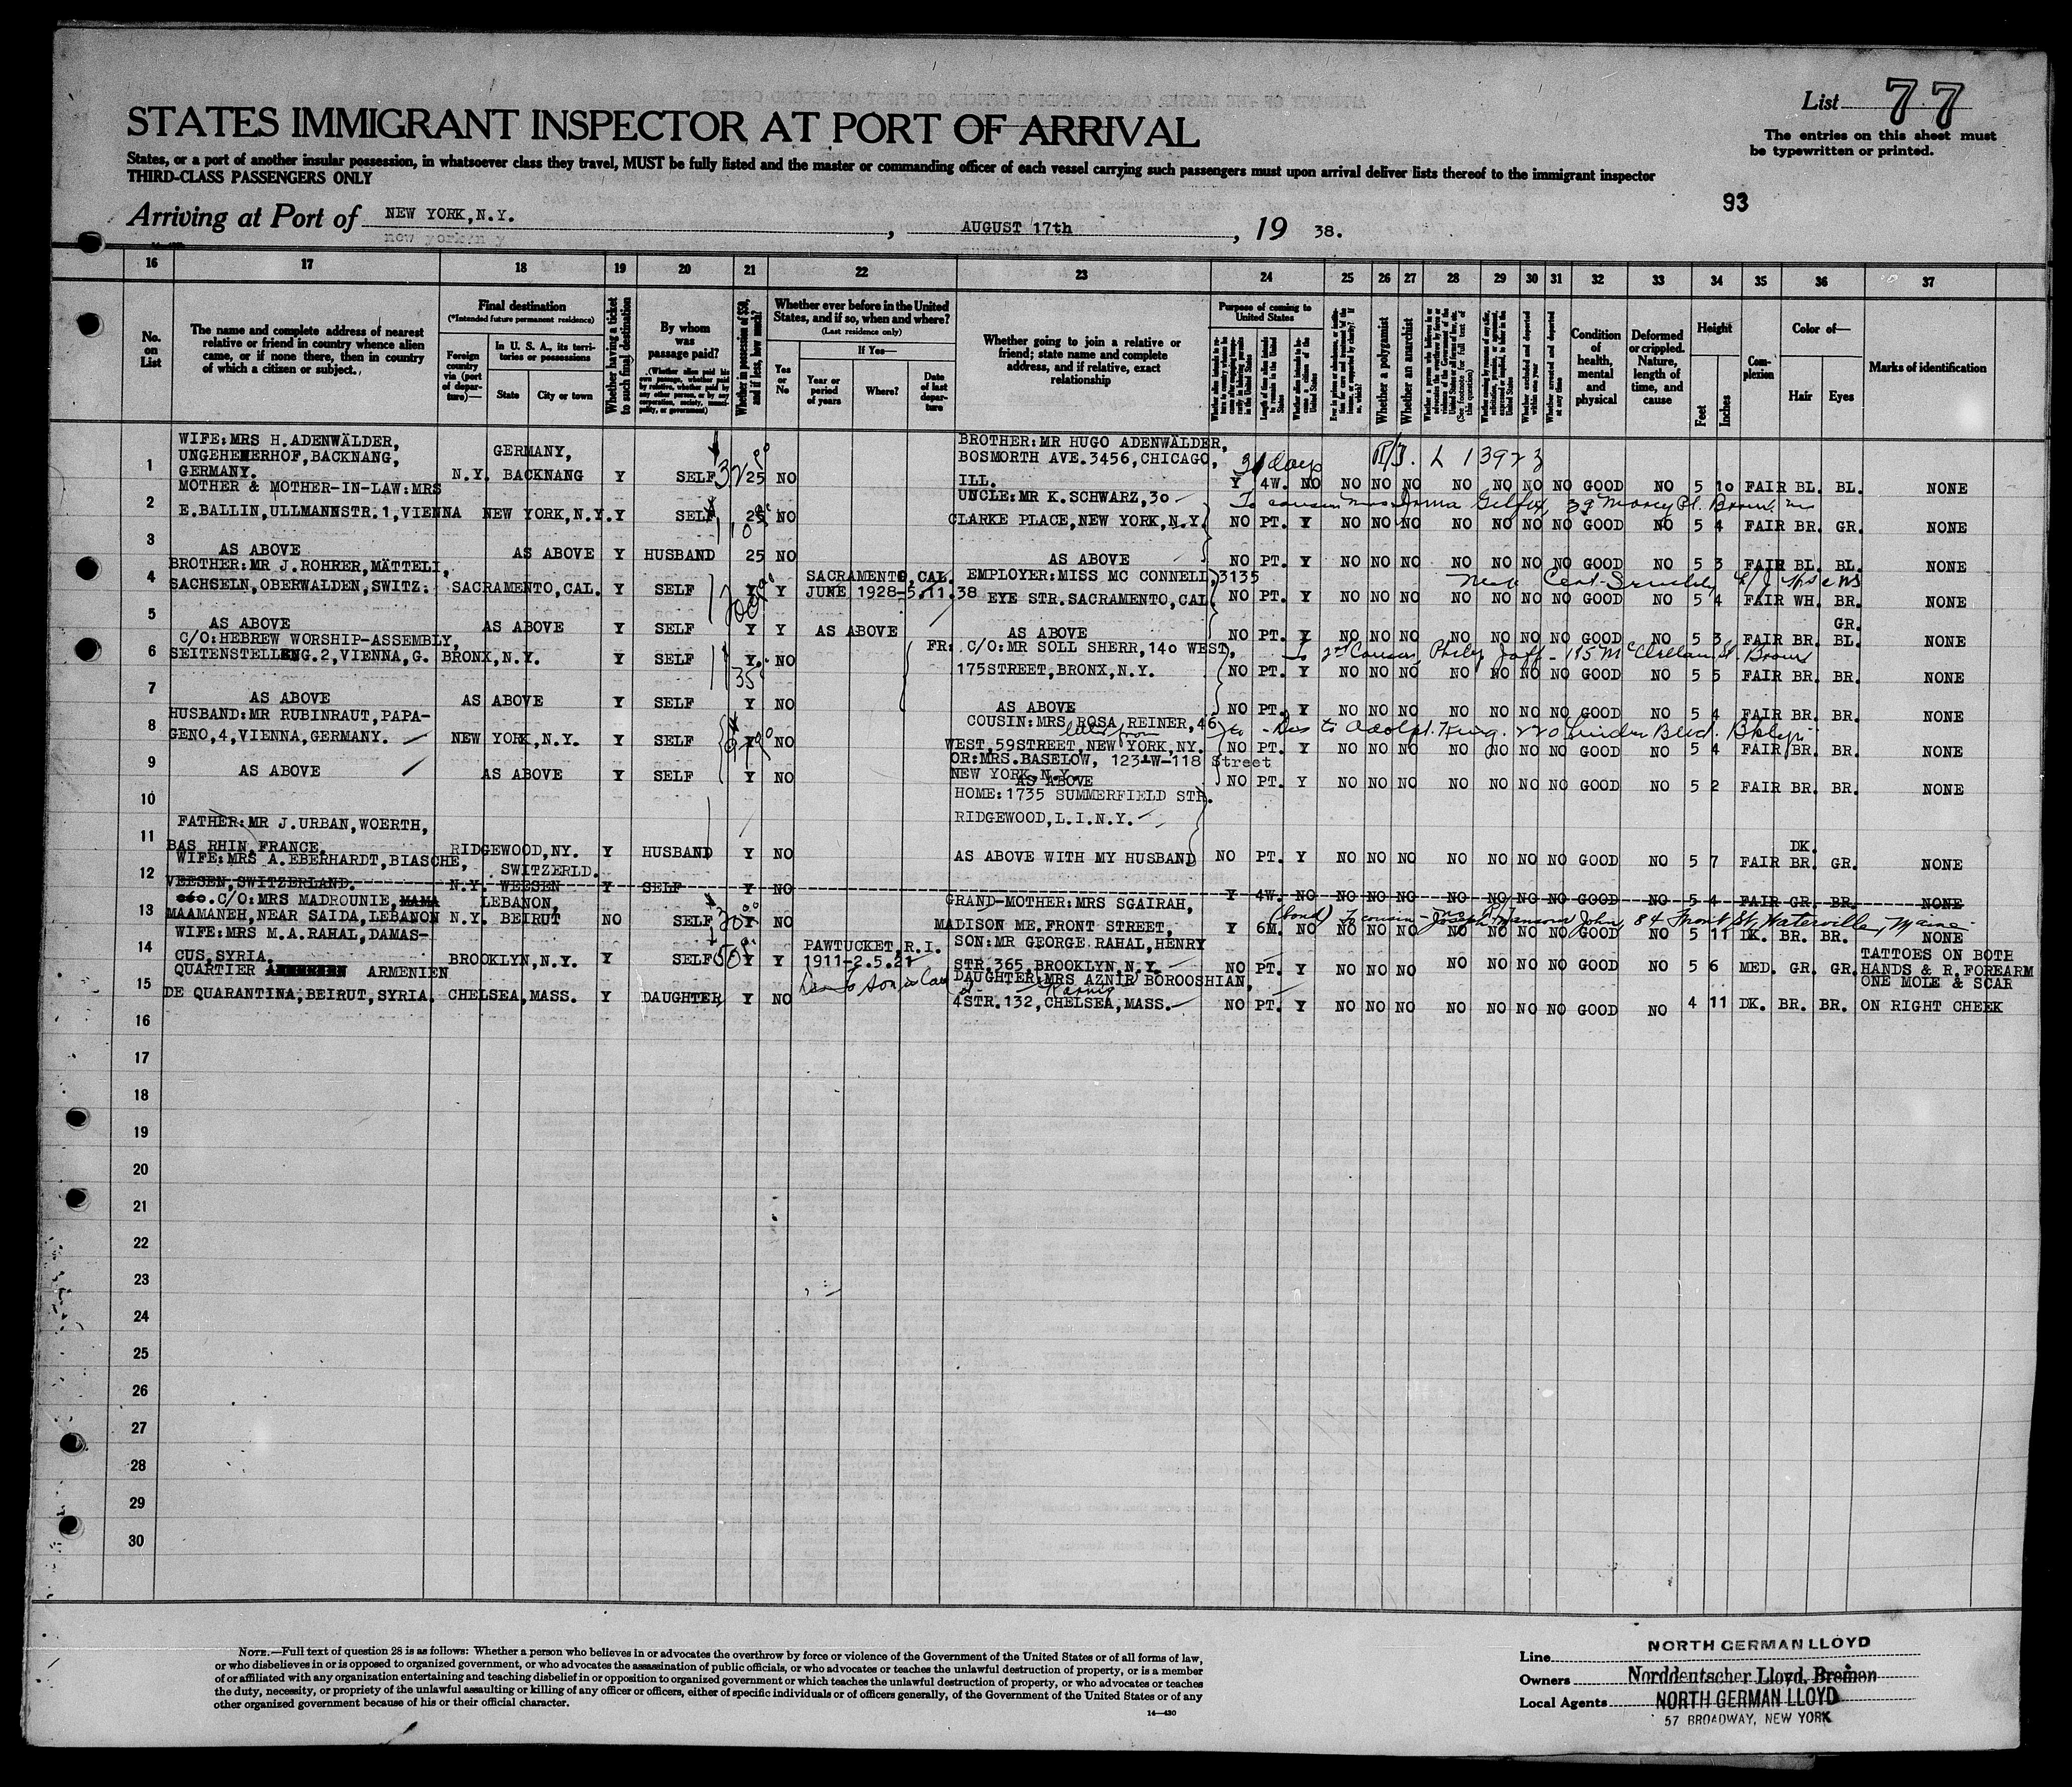 List 77
STATES IMMIGRANT INSPECTOR AT PORT OF ARRIVAL
The entries on this sheet must
be typewritten or printed.
States, or a port of another insular possession, in whatsoever class they travel, MUST be fully listed and the master or commanding officer of each vessel carrying such passengers must upon arrival deliver lists thereof to the immigrant inspector
THIRD-CLASS PASSENGERS ONLY
93
Arriving at Port of NEW YORK,N.Y. , AUGUST 17th , 19 38.
new york n y
16 17 18 19 20 21 22 23 24 25 26 27 28 29 30 31 32 33 34 35 36 37
No. on List
The name and complete address of nearest relative or friend in country whence alien came, or if none there, then in country of which a citizen or subject.
Final destination
(*Intended future permanent residence)
Foreign country via (port of departure)—
In U. S. A., its territories or possessions
State
City or town
Whether having a ticket to such final destination
By whom was passage paid?
(Whether alien paid his own passage, whether paid by relative, whether paid by any other person, or by any corporation, society, municipality, or government)
Whether in possession of $50, and if less, how much?
Whether ever before in the United States, and if so, when and where?
(Last residence only)
Yes or No
If Yes—
Year or period of years
Where?
Date of last departure
Whether going to join a relative or friend; state name and complete address, and if relative, exact relationship
Purpose of coming to United States
Length of time alien intends to remain in the United States
Whether alien intends to become a citizen of the United States
Whether a polygamist
Whether an anarchist
Whether arrested and deported at any time
Condition of health, mental and physical
Deformed or crippled. Nature, length of time, and cause
Height
Feet
Inches
Complexion
Color of—
Hair
Eyes
Marks of identification
WIFE:MRS H.ADENWÄLDER, GERMANY, BROTHER:MR HUGO ADENWÄLDER,
UNGEHEUERHOF,BACKNANG, BOSMORTH AVE.3456,CHICAGO, 31 days
1 GERMANY. N.Y. BACKNANG Y SELF 25 NO ILL. Y 4W. NO NO NO NO NO NO NO NO GOOD NO 5 10 FAIR BL. BL. NONE
MOTHER & MOTHER-IN-LAW:MRS UNCLE:MR K.SCHWARZ,30 To cousin
2 E.BALLIN,ULLMANNSTR.1,VIENNA NEW YORK,N.Y. Y SELF 25 NO CLARKE PLACE,NEW YORK,N.Y. NO PT. Y NO NO NO NO NO NO NO GOOD NO 5 4 FAIR BR. GR. NONE
3 AS ABOVE AS ABOVE Y HUSBAND 25 NO AS ABOVE NO PT. Y NO NO NO NO NO NO NO GOOD NO 5 3 FAIR BL. BL. NONE
BROTHER:MR J.ROHRER,MÄTTELI, SACRAMENTO,CAL. EMPLOYER:MISS MC CONNELL,3135
4 SACHSELN,OBERWALDEN,SWITZ: SACRAMENTO,CAL. Y SELF Y Y JUNE 1928-5.11.38 EYE STR.SACRAMENTO,CAL. NO PT. Y NO NO NO NO NO NO NO GOOD NO 5 4 FAIR WH. BR. NONE
GR.
5 AS ABOVE AS ABOVE Y SELF Y Y AS ABOVE AS ABOVE NO PT. Y NO NO NO NO NO NO NO GOOD NO 5 3 FAIR BR. BL. NONE
C/O:HEBREW WORSHIP-ASSEMBLY, FR: C/O:MR SOLL SHERR,140 WEST, To 2nd Cousin
6 SEITENSTELLENG.2,VIENNA,G. BRONX,N.Y. Y SELF Y. NO 175STREET,BRONX,N.Y. NO PT. Y NO NO NO NO NO NO NO GOOD NO 5 5 FAIR BR. BR. NONE
7 AS ABOVE AS ABOVE Y SELF Y NO AS ABOVE NO PT. Y NO NO NO NO NO NO NO GOOD NO 5 4 FAIR BR. BR. NONE
HUSBAND:MR RUBINRAUT,PAPA- COUSIN:MRS ROSA REINER,46
8 GENO,4,VIENNA,GERMANY. NEW YORK,N.Y. Y SELF NO WEST,59STREET,NEW YORK,NY. NO PT. Y NO NO NO NO NO NO NO GOOD NO 5 4 FAIR BR. BR. NONE
OR:MRS.BASELOW, 123-W-118 Street
NEW YORK,N.Y.
9 AS ABOVE AS ABOVE Y SELF Y NO AS ABOVE NO PT. Y NO NO NO NO NO NO NO GOOD NO 5 2 FAIR BR. BR. NONE
10 HOME:1735 SUMMERFIELD STR.
FATHER:MR J.URBAN,WOERTH, RIDGEWOOD,L.I.N.Y.
DK.
11 BAS RHIN,FRANCE. RIDGEWOOD,NY. Y HUSBAND Y NO AS ABOVE WITH MY HUSBAND NO PT. Y NO NO NO NO NO NO NO GOOD NO 5 7 FAIR BR. GR. NONE
WIFE:MRS A.EBERHARDT,BIASCHE, SWITZERLD.
12 VEESEN,SWITZERLAND. N.Y. WEESEN Y SELF Y NO Y 4W. NO NO NO NO NO NO NO NO GOOD NO 5 4 FAIR GR. BR. NONE
C/O:MRS MADROUNIE, MAMA LEBANON, GRAND-MOTHER:MRS SGAIRAH, (bond) To cousin
13 MAAMANEH,NEAR SAIDA,LEBANON N.Y. BEIRUT NO SELF Y NO MADISON ME.FRONT STREET, Y 6M. NO NO NO NO NO NO NO NO GOOD NO 5 11 DK. BR. BR. NONE
WIFE:MRS M.A.RAHAL,DAMAS- PAWTUCKET,R.I. SON:MR GEORGE RAHAL,HENRY TATTOES ON BOTH
14 CUS,SYRIA. BROOKLYN,N.Y. Y SELF Y Y 1911-2.5.21 STR.365,BROOKLYN,N.Y. NO PT. Y NO NO NO NO NO NO NO GOOD NO 5 6 MED. GR. GR. HANDS & R.FOREARM
QUARTIER ARMENIEN DAUGHTER:MRS AZNIR BOROOSHIAN, ONE MOLE & SCAR
15 DE QUARANTINA,BEIRUT,SYRIA. CHELSEA,MASS. Y DAUGHTER Y NO 4STR.132,CHELSEA,MASS. NO PT. Y NO NO NO NO NO NO NO GOOD NO 4 11 DK. BR. BR. ON RIGHT CHEEK
16
17
18
19
20
21
22
23
24
25
26
27
28
29
30
NOTE.—Full text of question 28 is as follows: Whether a person who believes in or advocates the overthrow by force or violence of the Government of the United States or of all forms of law,
or who disbelieves in or is opposed to organized government, or who advocates the assassination of public officials, or who advocates or teaches the unlawful destruction of property, or is a member
of or affiliated with any organization entertaining and teaching disbelief in or opposition to organized government or which teaches the unlawful destruction of property, or who advocates or teaches
the duty, necessity, or propriety of the unlawful assaulting or killing of any officer or officers, either of specific individuals or of officers generally, of the Government of the United States or of any
other organized government because of his or their official character.
14—430
Line NORTH GERMAN LLOYD
Owners Norddeutscher Lloyd, Bremen
Local Agents NORTH GERMAN LLOYD
57 BROADWAY, NEW YORK